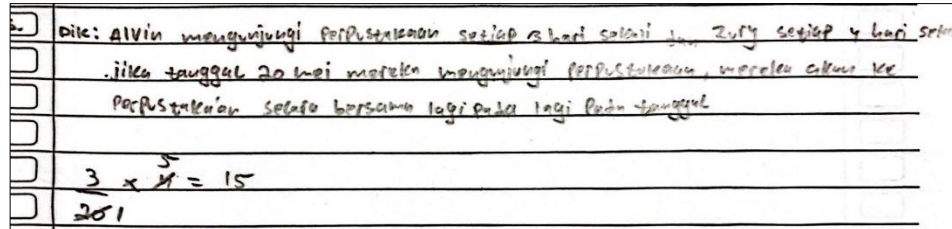 Dik: Alvin mengunjungi perpustakaan setiap 3 hari sekali dan Zury setiap 4 hari sek
jika tanggal 20 mei mereka mengunjungi perpustakaan, mereka akan ke
perpustakaan secara bersama lagi pada lagi pada tanggal
3/201 × 5 4 = 15